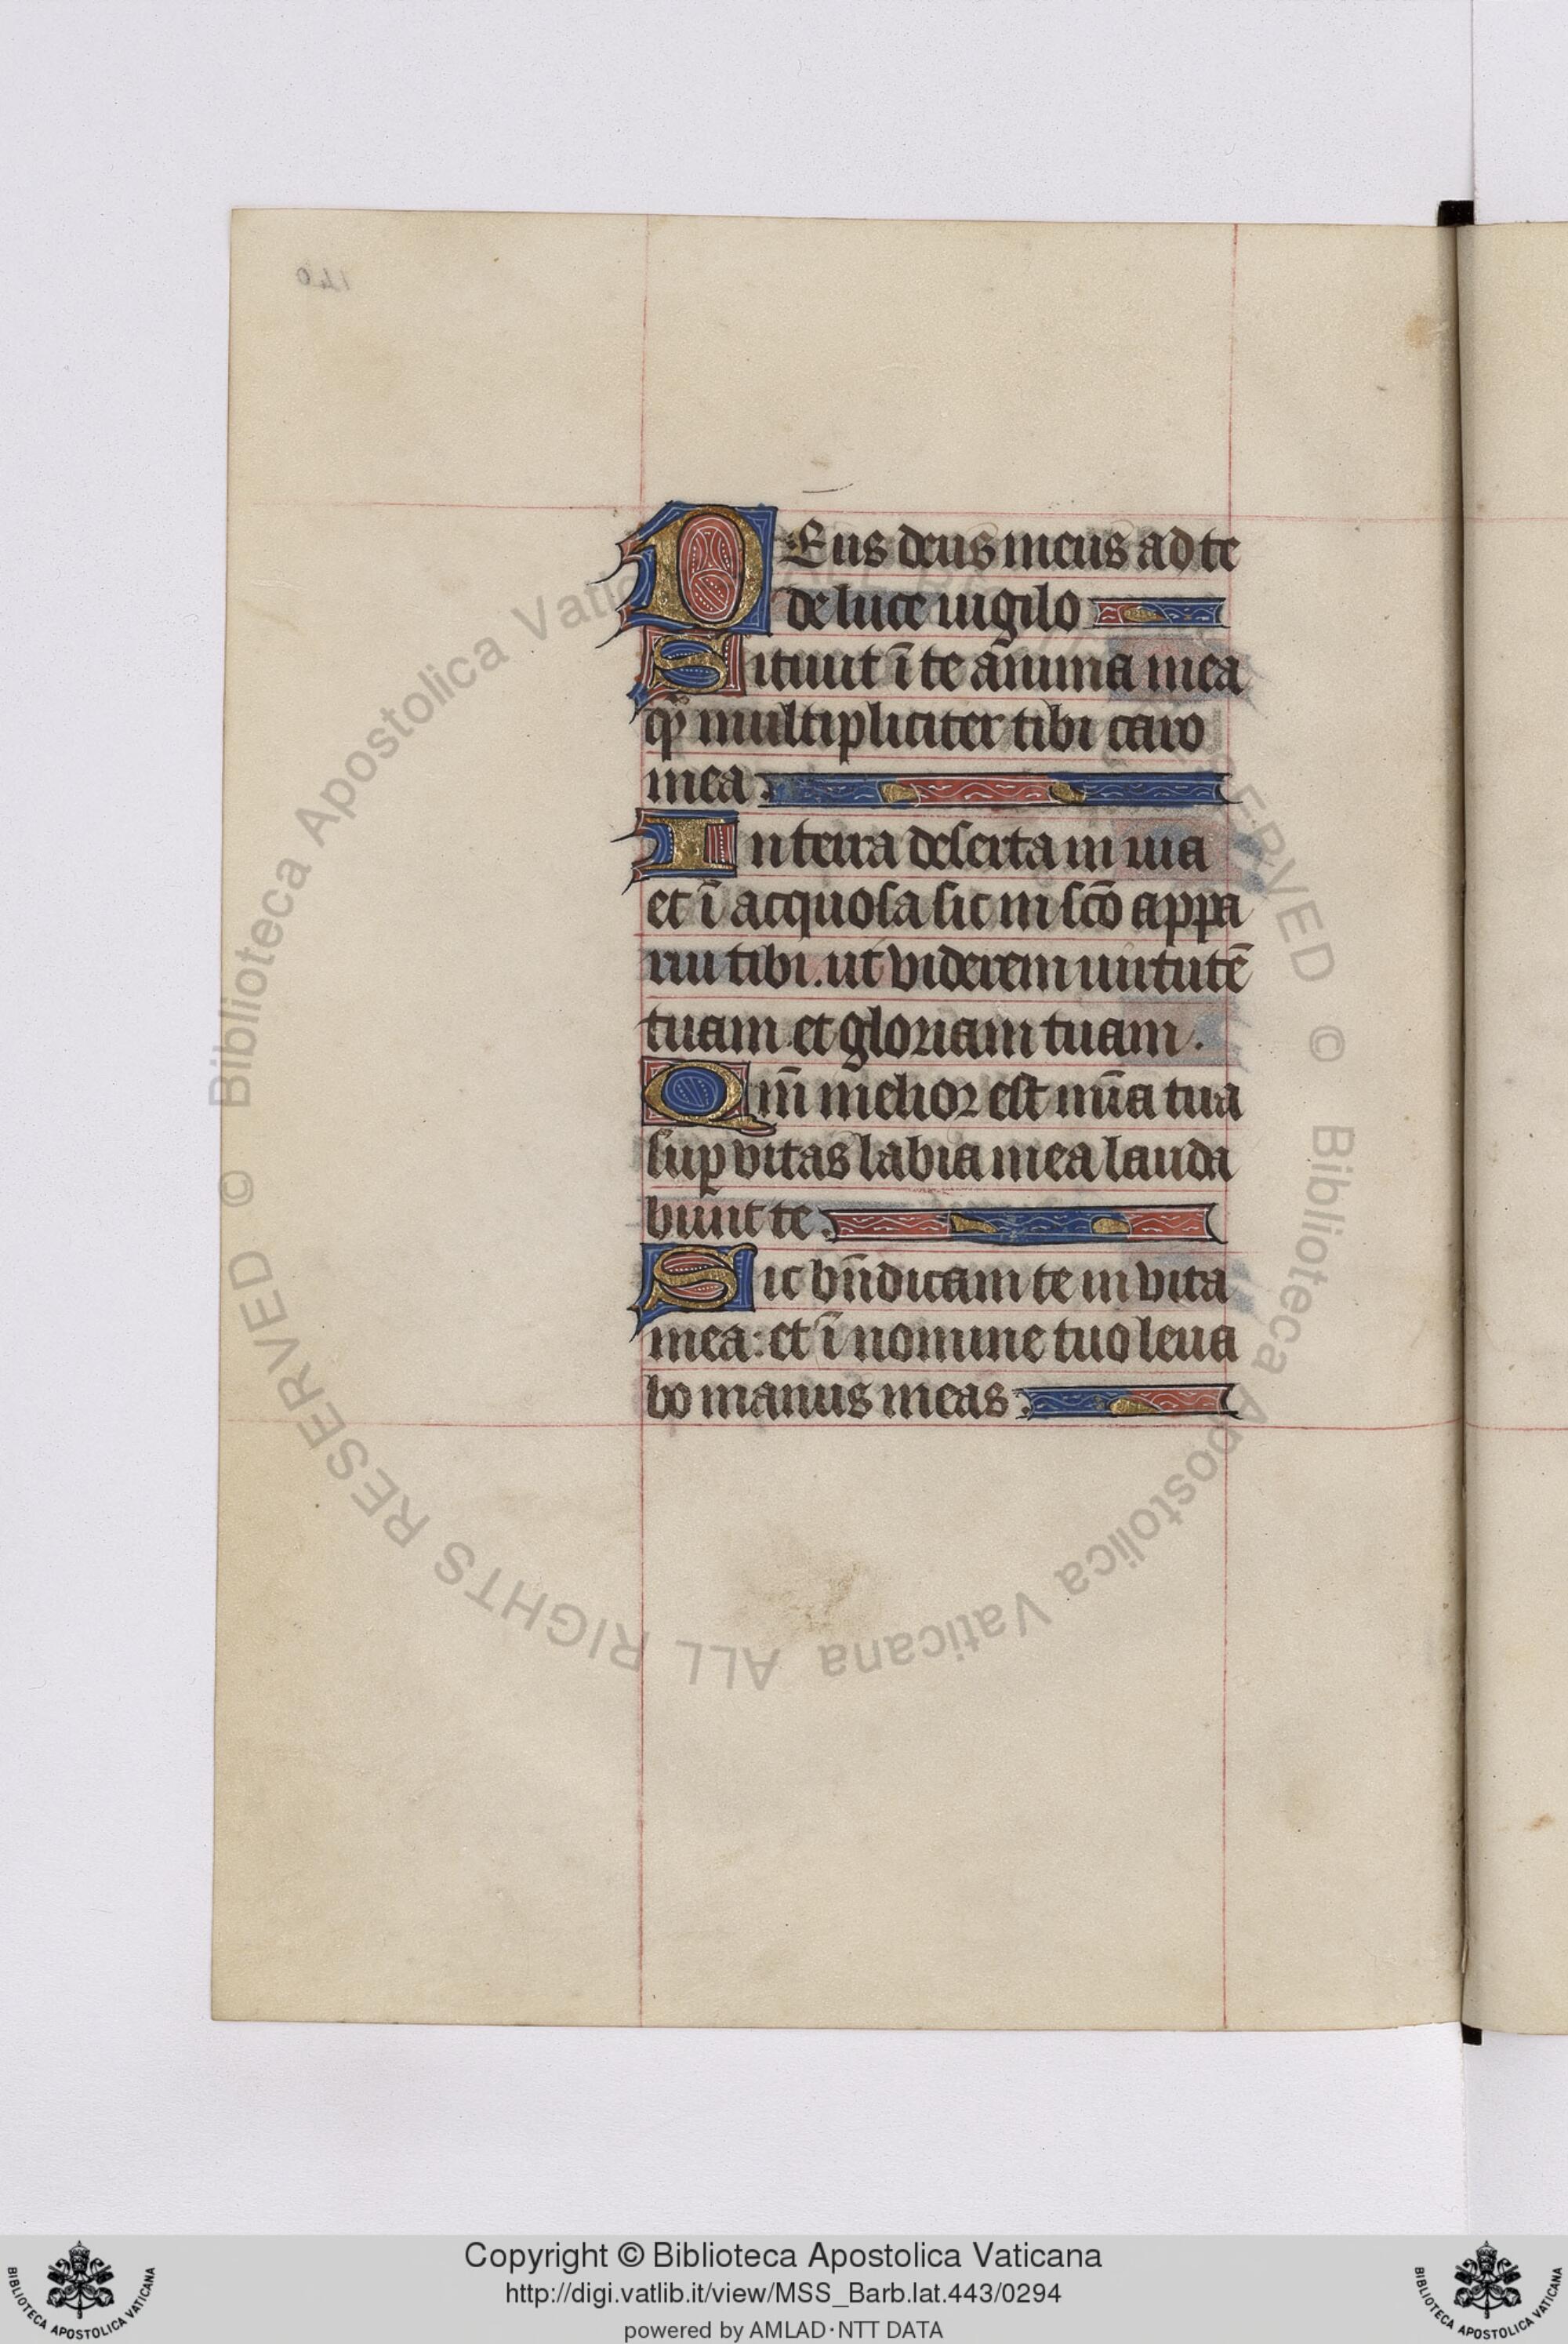 DEus deus meus ad te
de luce uigilo
Sitiuit ī te anima mea
qͣ multipliciter tibi caro
mea.
In terra deserta in uia
et ī acquosa sic in sc̄o appa
rui tibi. ut viderem uirtutē
tuam et gloriam tuam.
Qm̄ melior est mīa tua
suꝑ vitas labia mea lauda
bunt te.
Sic bn̄dicam te in vita
mea: et ī nomine tuo leua
bo manus meas.
© Biblioteca Apostolica Vaticana ALL RIGHTS RESERVED © Biblioteca Apostolica Vaticana ALL RIGHTS RESERVED
Copyright © Biblioteca Apostolica Vaticana
http://digi.vatlib.it/view/MSS_Barb.lat.443/0294
powered by AMLAD·NTT DATA
BIBLIOTECA APOSTOLICA VATICANA
BIBLIOTECA APOSTOLICA VATICANA